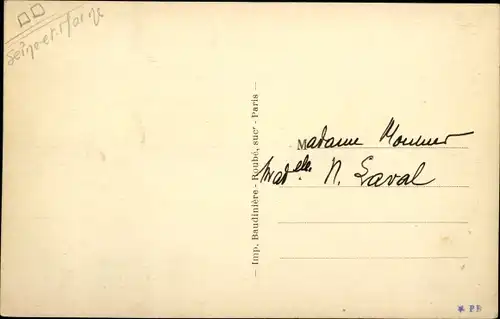 Seine-et-Marne
— Imp. Baudinière - Roubé, sucʳ - Paris —
Madame
Madelle. N. Laval
* PB